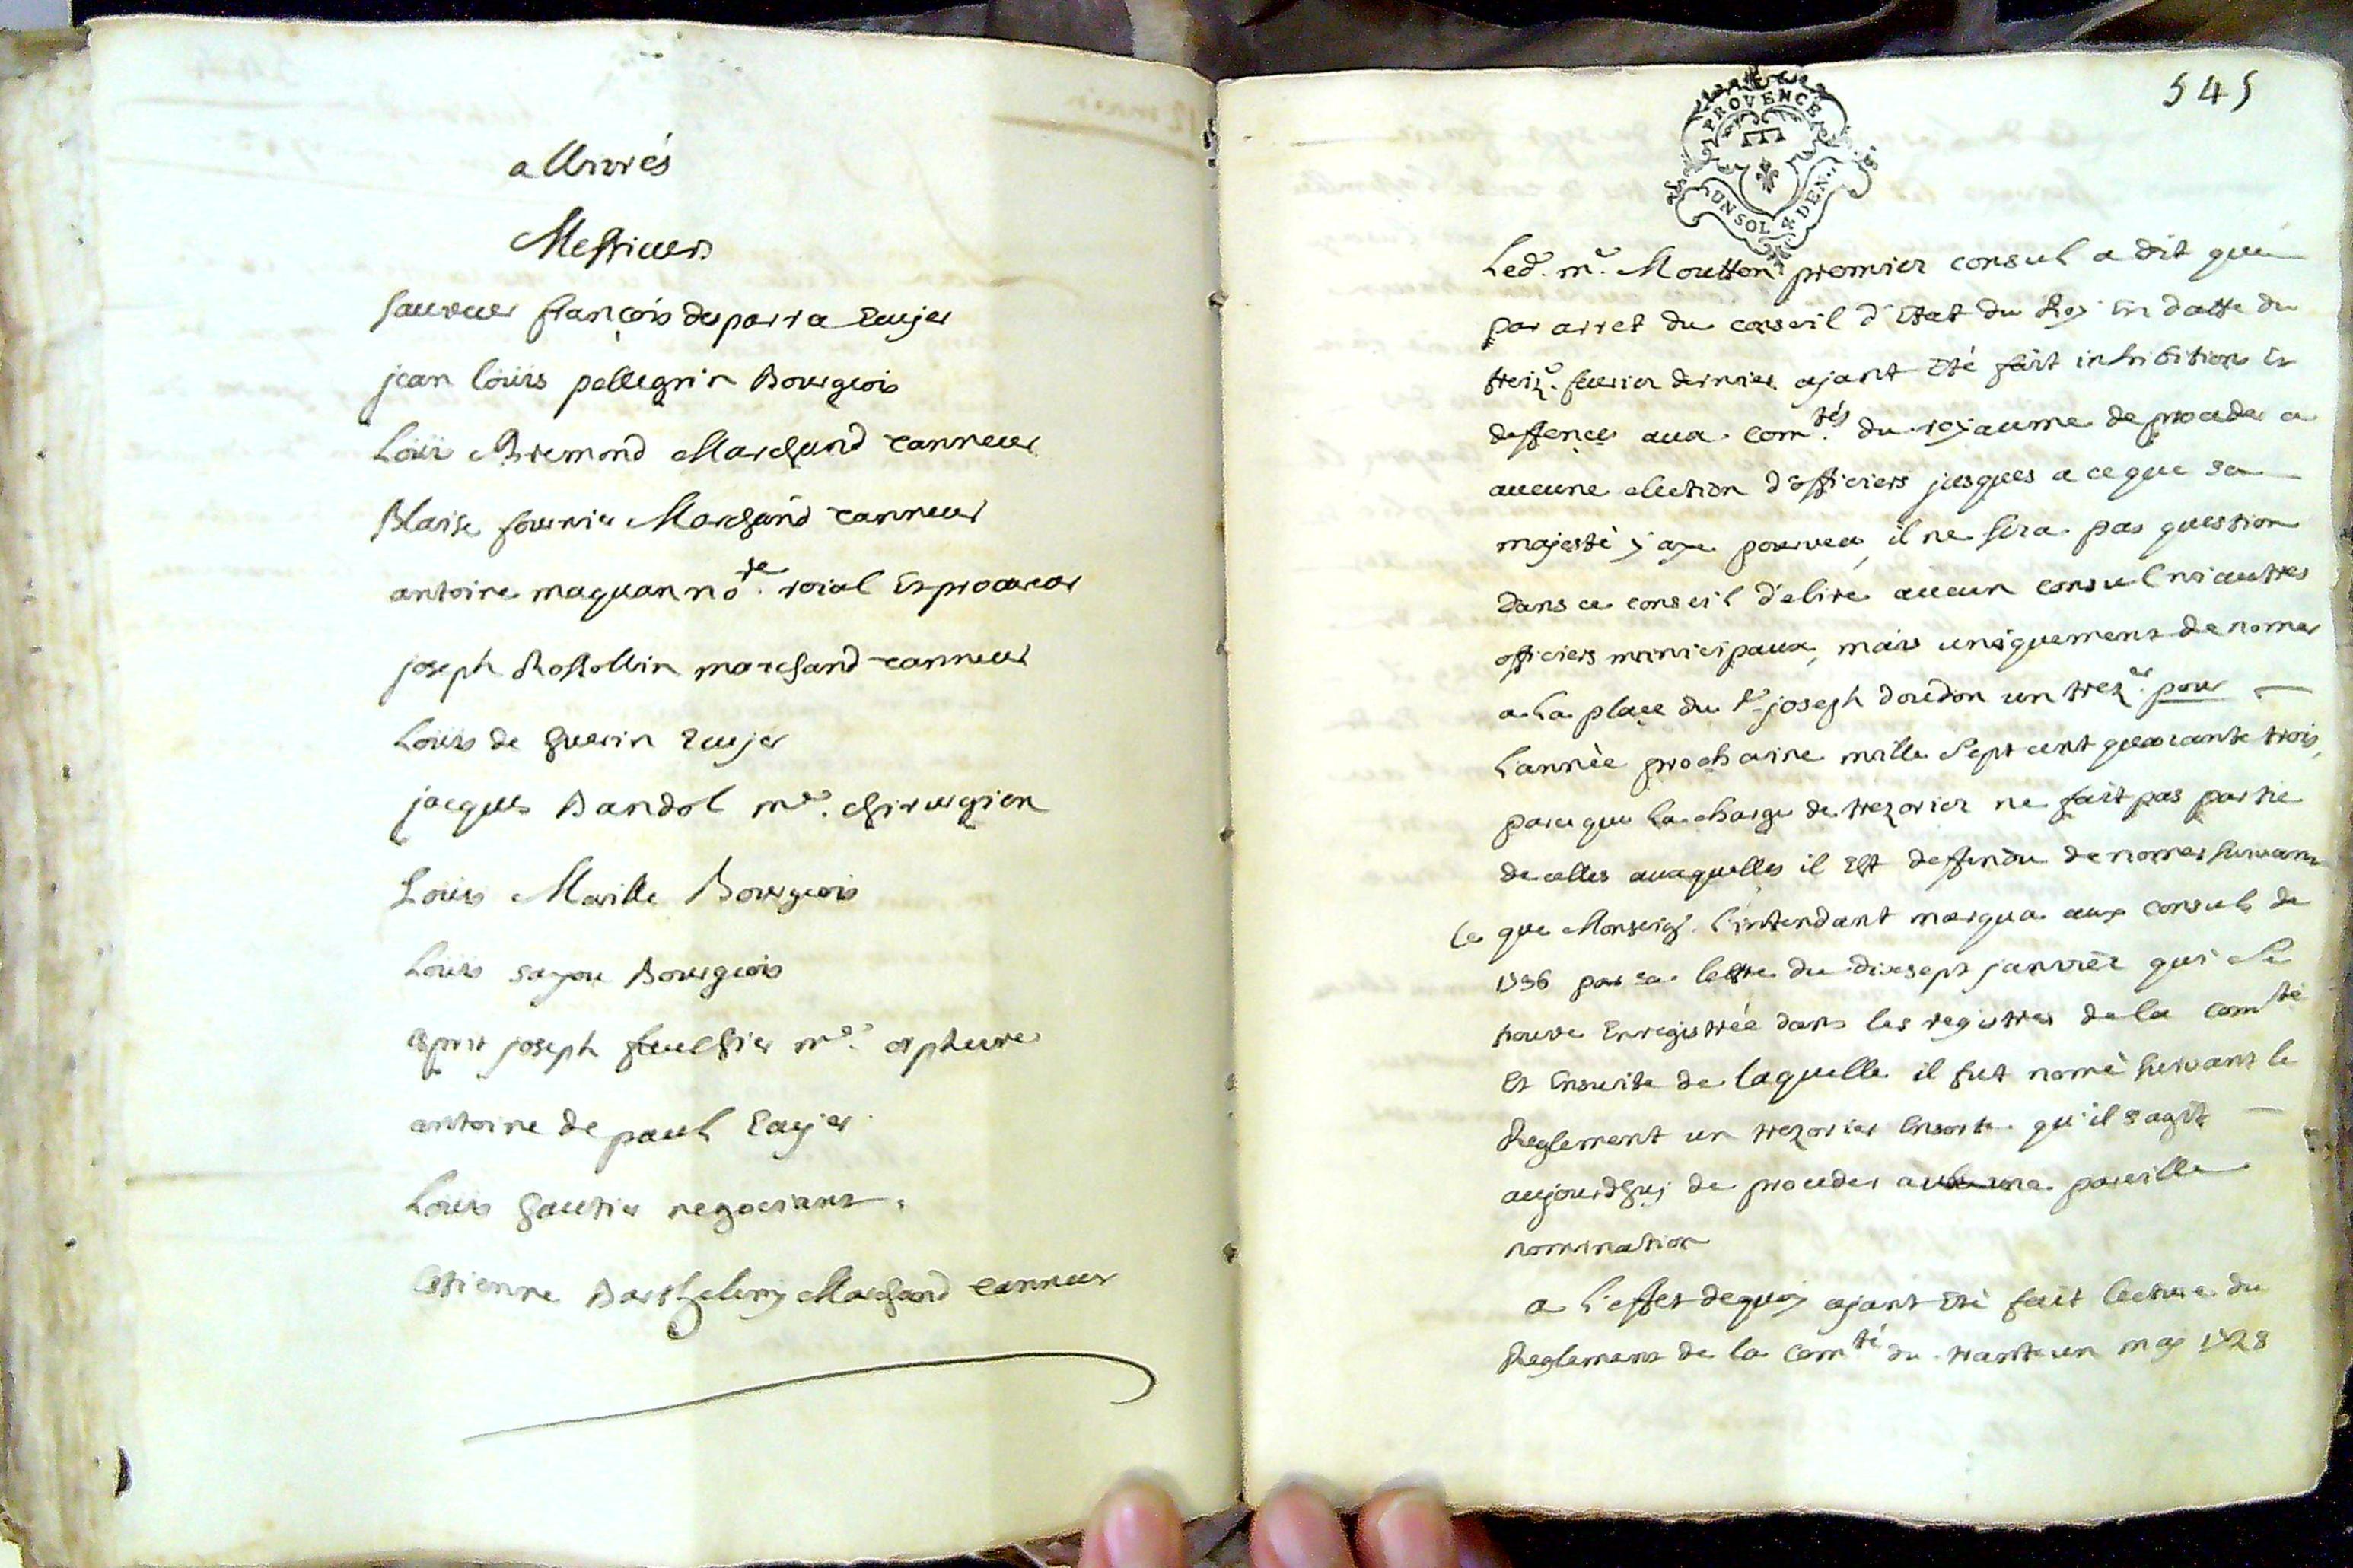 allivrés
Messieurs
Sauveur françois de parra Ecujer
jean Loüis pellegrin Bourgeois
Loüis Bremond Marchand tanneur
Blaise fournier Marchand tanneur
antoine maquan no.re roial Et procureur
joseph Rossollin marchand tanneur
Loüis de Guerin Ecujer
jacques Bandol me. chirurgien
Loüis Maille Bourgeois
Loüis sajou Bourgeois
Esprit joseph fauchier me. orpheuvre
antoine de paul Ecujer
Loüis Gautier negociant.
Estienne Barthelemy Marchand tanneur
545
PROVENCE
UN SOL 4 DEN.
Led. mr. Moutton premier consul a dit que
par arret du conseil d'Etat du Roy En datte du
treize. feuvrier dernier ajant Eté fait inhibitions Et
deffences aux com.tés du rojaume de proceder a
aucune election d'officiers jusques a ce que sa
majesté y aye pourveu, il ne sera pas question
dans ce conseil d'elire aucun consul ni autres
officiers municipaux, mais uniquement de nomer
a la place du Sr joseph doudon un trez.er pour
L'année prochaine mille Sept cent quarante trois,
parce que la charge de trezorier ne fait pas partie
de celles auxquelles il Est deffendu de nomer suivant
Ce que Monseigr. L'intendant marqua aux consuls de
1736 par sa lettre du dixsept janvier qui se
trouve Enregistrée dans les registres de la com.té
Et Ensuite de laquelle il fut nomé suivant le
Reglement un trezorier Ensorte qu'il s'agit
aujourdhuj de proceder a une pareille
nomination
a L'effet dequoy ajant Eté fait lecture du
Reglement de la com.té du trante un may 1728